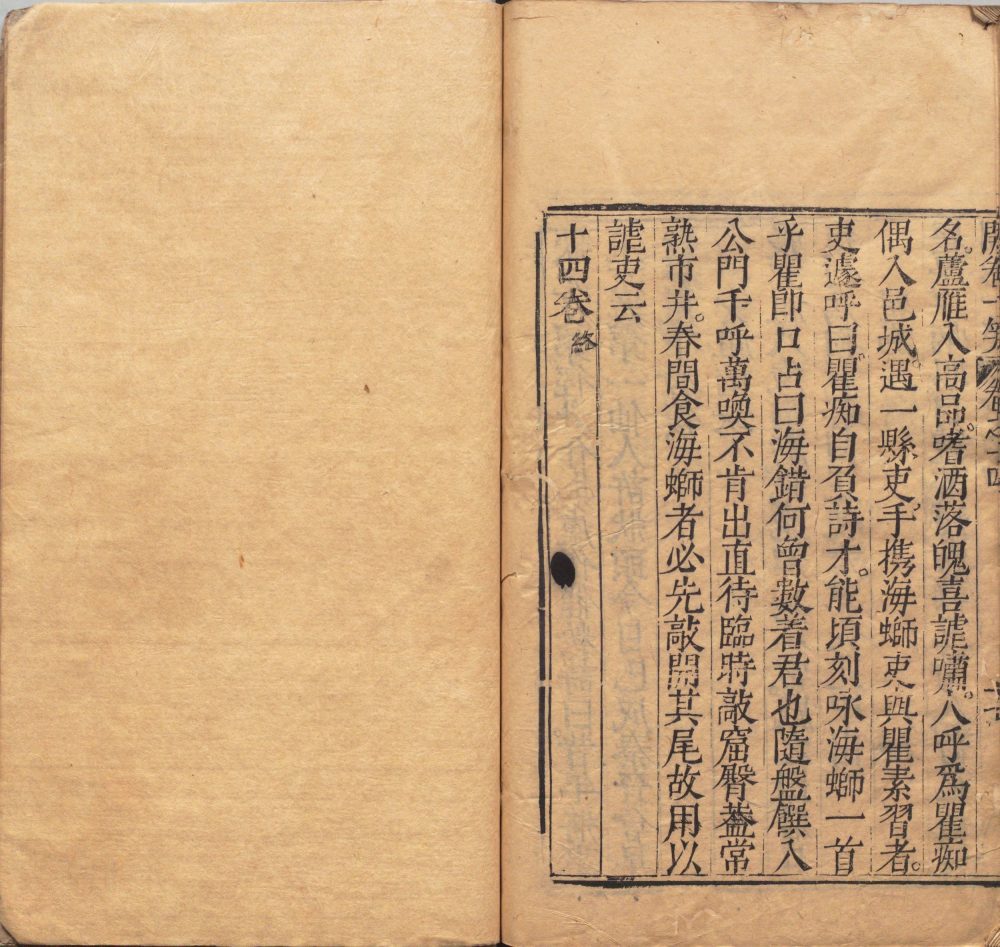 開卷一笑 卷
名。蘆雁入高品。嗜酒落魄喜謔嘯。人呼爲瞿痴
偶入邑城。遇一縣吏。手携海螄吏與瞿素習者。
吏遽呼曰。瞿痴自負詩才。能頃刻咏海螄一首
乎瞿卽口占曰海錯何曾數着君也隨盤饌入
公門千呼萬喚不肯出直待臨時敲窟臀葢常
熟市井。春間食海螄者必先敲開其尾故用以
謔吏云
十四卷終